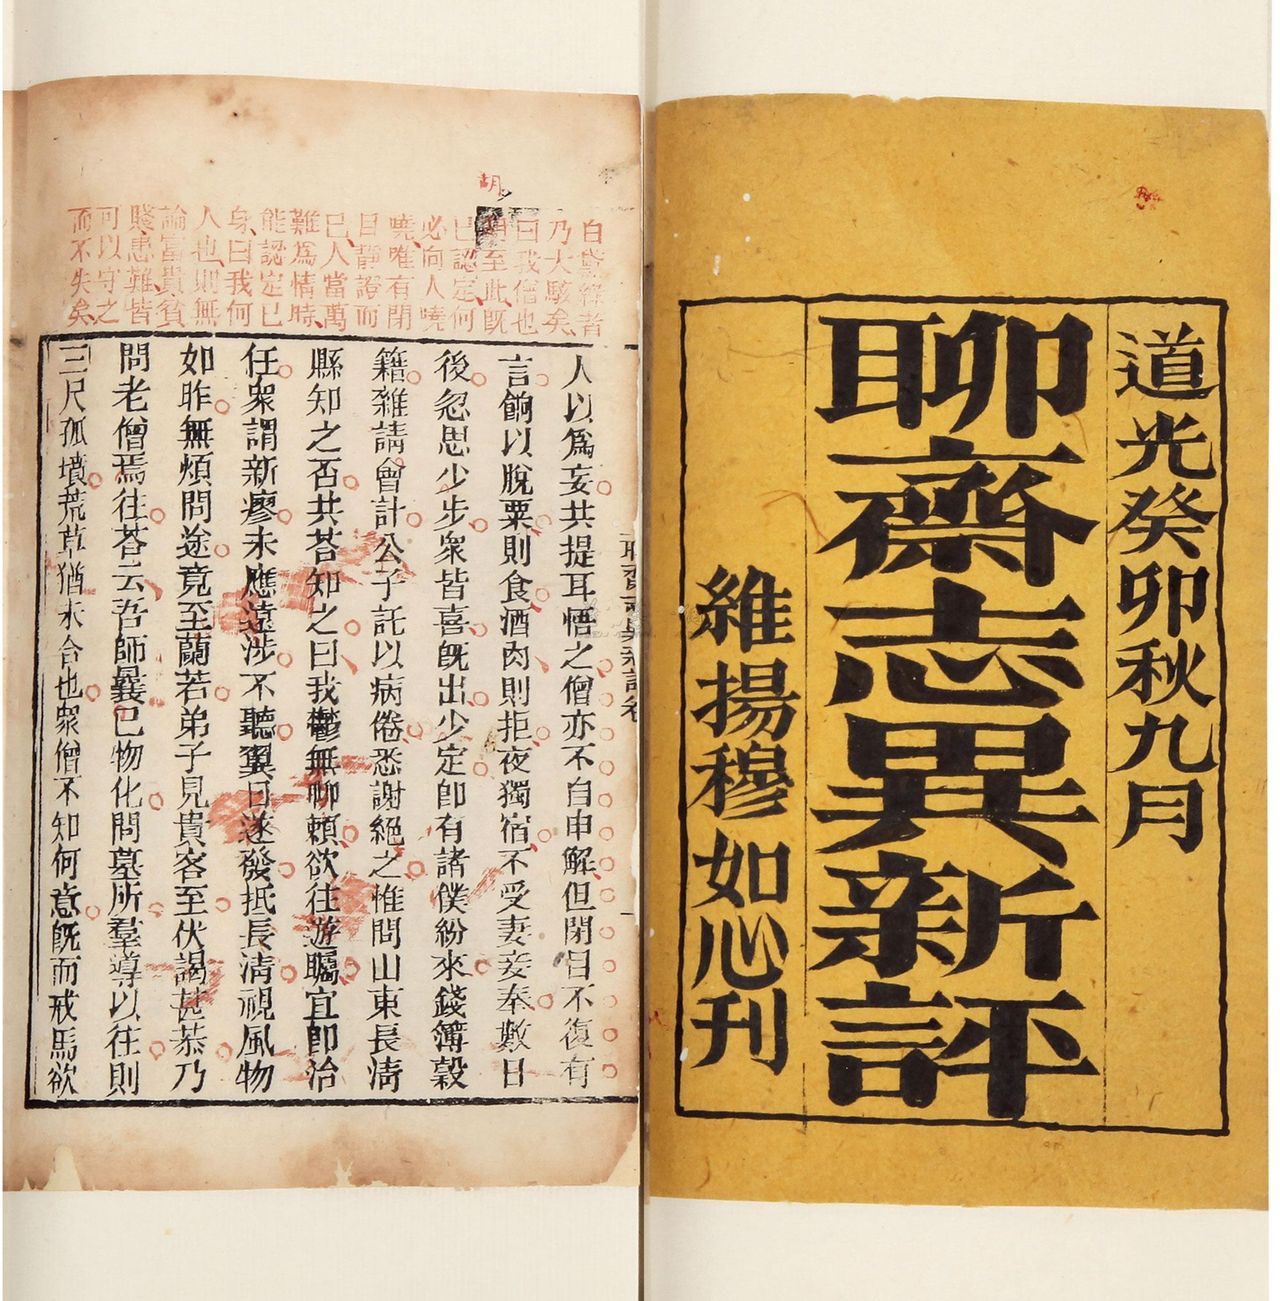 道光癸卯秋九月
聊齋志異新評
維揚穆如心刊
聊齋志異新評卷
胡
白黛綠者
乃大駭矣
曰我僧也
至此既
已認定何
必向人曉
曉唯有閉
目靜證而
已人當萬
難為情時
能認定已
身曰我何
人也則無
論富貴貧
賤患難皆
可以守之
而不失矣
人以爲妄共提耳悟之僧亦不自申解但閉目不復有
言餉以脫粟則食酒肉則拒夜獨宿不受妻妾奉數日
後忽思少步衆皆喜旣出少定卽有諸僕紛來錢簿穀
籍雜請會計公子託以病倦悉謝絕之惟問山東長淸
縣知之否共荅知之曰我鬱無聊賴欲往遊矚宜卽治
任衆謂新瘳未應遠涉不聽翼日遂發抵長淸視風物
如昨無煩問途竟至蘭若弟子見貴客至伏謁甚恭乃
問老僧焉往荅云吾師曩已物化問墓所羣導以往則
三尺孤墳荒草猶未合也衆僧不知何意旣而戒馬欲